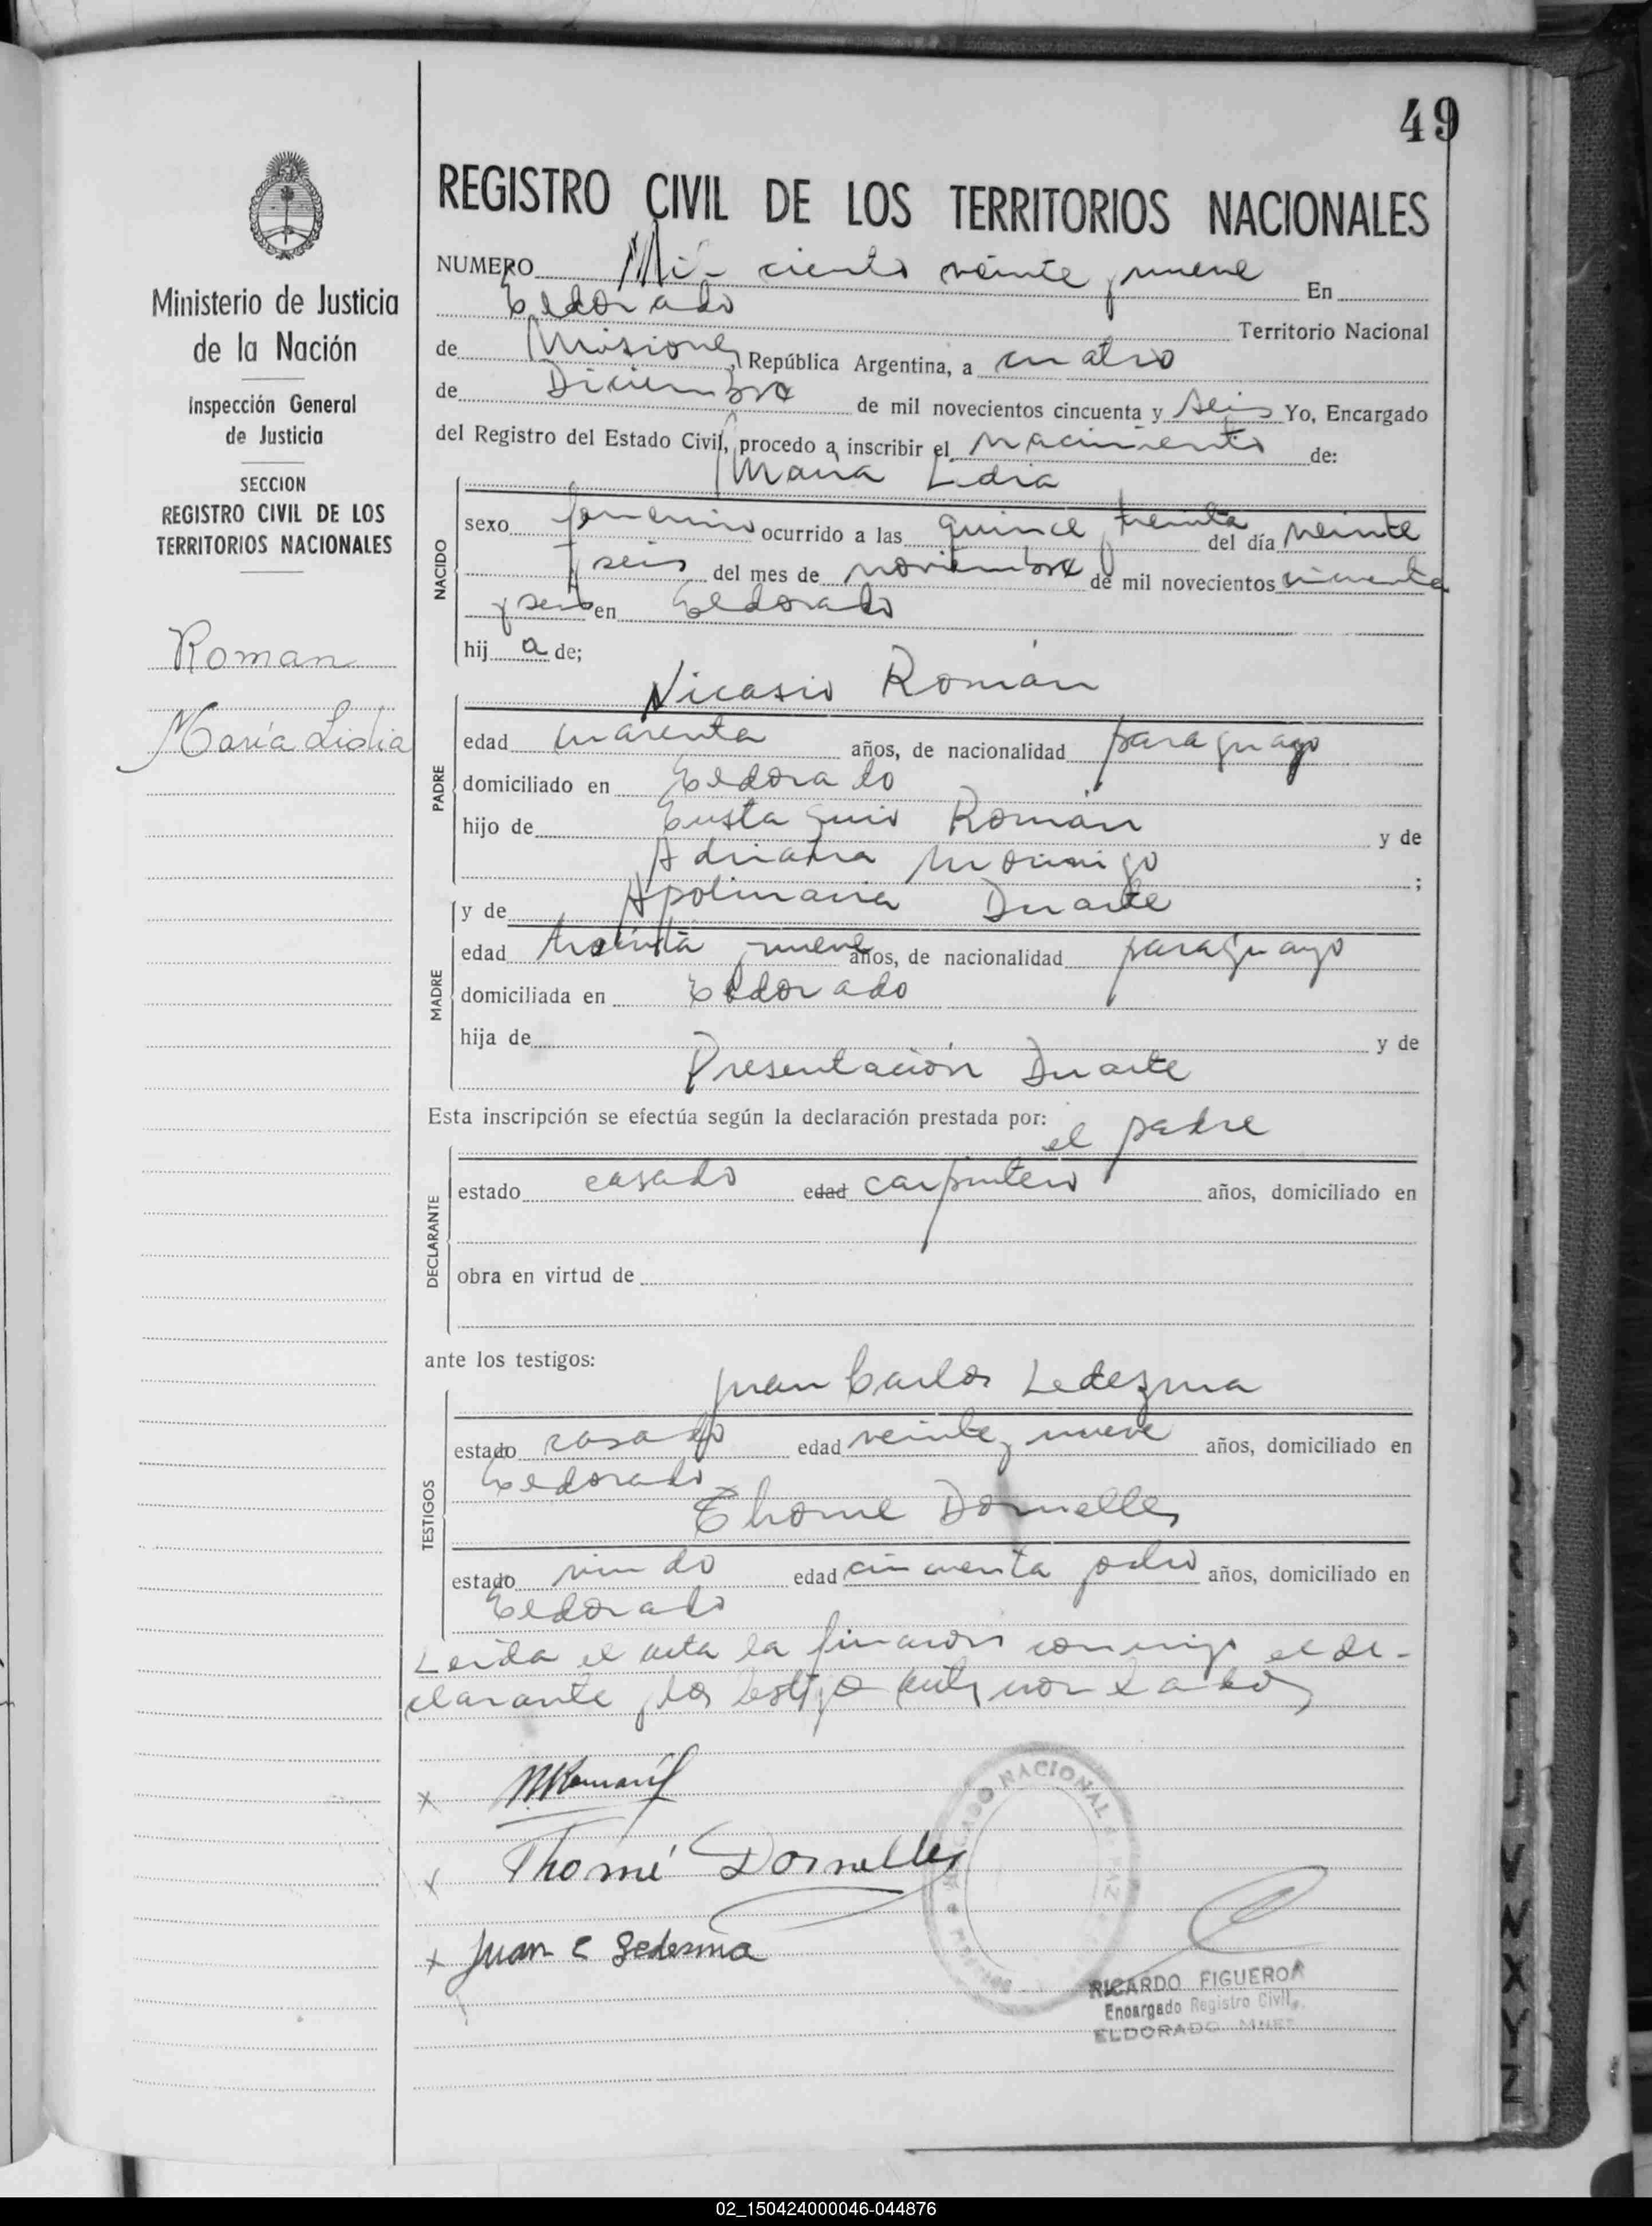 49
REGISTRO CIVIL DE LOS TERRITORIOS NACIONALES
Ministerio de Justicia
de la Nación
Inspección General
de Justicia
SECCION
REGISTRO CIVIL DE LOS
TERRITORIOS NACIONALES
Roman
María Lidia
NUMERO Mil ciento veinte y nueve En
Eldorado Territorio Nacional
de Misiones, República Argentina, a cuatro
de Diciembre de mil novecientos cincuenta y seis Yo, Encargado
del Registro del Estado Civil, procedo a inscribir el nacimiento de:
María Lidia
NACIDO
sexo femenino ocurrido a las quince y treinta del día veinte
y seis del mes de noviembre de mil novecientos cincuenta
y seis en Eldorado
hij a de;
Nicasio Román
PADRE
edad cuarenta años, de nacionalidad paraguayo
domiciliado en Eldorado
hijo de Eustaquio Román y de
Adriana Morinigo ;
y de Apolinaria Duarte
MADRE
edad treinta y nueve años, de nacionalidad paraguayo
domiciliada en Eldorado
hija de y de
Presentación Duarte
Esta inscripción se efectúa según la declaración prestada por:
el padre
DECLARANTE
estado casado edad carpintero años, domiciliado en
obra en virtud de
ante los testigos:
Juan Carlos Ledezma
TESTIGOS
estado casado edad veinte y nueve años, domiciliado en
Eldorado
Thome Dornelles
estado viudo edad cincuenta y ocho años, domiciliado en
Eldorado
Leida el acta la firmaron conmigo el de-
clarante y los testigos
x NRomán
x Thomé Dornelles
x Juan C Ledesma
NACIONAL PAZ
RICARDO FIGUEROA
Encargado Registro Civil
ELDORADO MNES
V
W
X
Y
Z
02_150424000046-044876